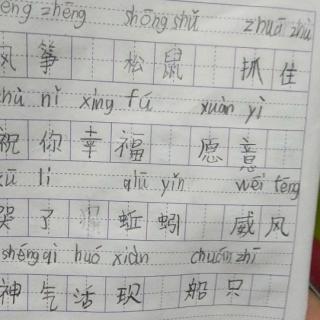 ēng zhēng shōng shǔ zhuā zhù
风筝 松鼠 抓住
hù nǐ xìng fú xuàn yì
祝你幸福 愿意
ū li qiū yǐn wēi fēng
哭了 蚯蚓 威风
shéng qì huó xiàn chuán zhī
神气活现 船只